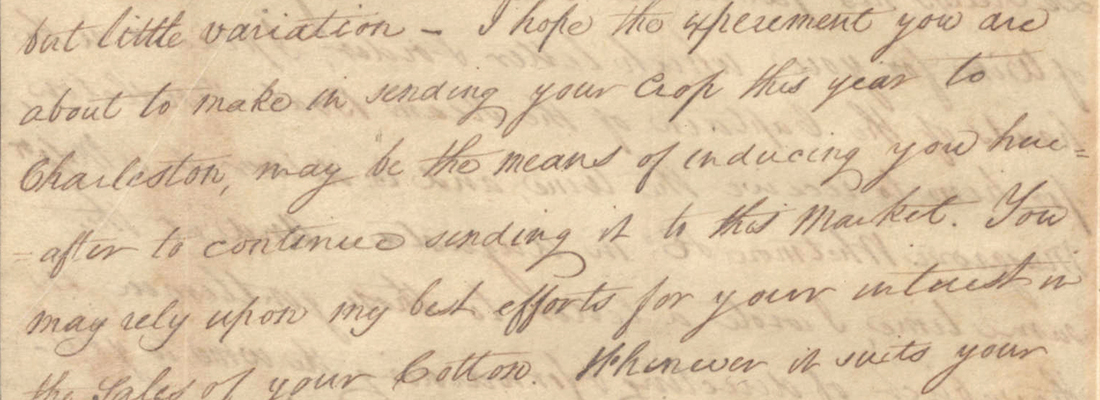 but little variation – I hope the experement you are
about to make in sending your Crop this year to
Charleston, may be the means of inducing you hue=
=after to continue sending it to this Market. You
may rely upon my best efforts for your interest in
the Sales of your Cotton. Whenever it suits your